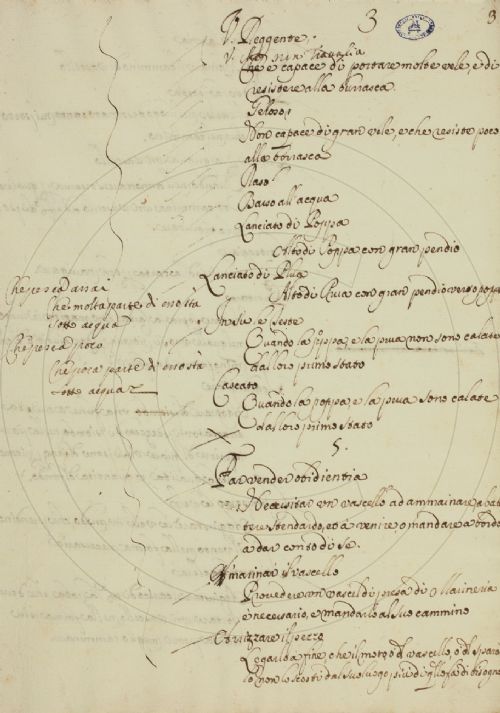 3
3
V. Reggente.
V. che non Travaglia
Che è capace di portare molte vele, e di
resistere alla burrasca.
Geloso
Non capace di gran vele, e che resiste poco
alla burrasca
Raso
Basso all'acqua
Lanciato di Poppa
Alto di Poppa con gran pendio
Lanciato di Prua
Alto di Prua con gran pendio verso poppa
In sue seste
Quando la poppa, e la prua non sono calate
dal loro primo stato
Cascato
Quando la poppa, e la prua sono calate
dal loro primo stato
Che pesca assai
Che molta parte di esso stà
sotto acqua
Che pesca poco
Che poca parte di esso stà
sotto acqua
5.
Far render obidientia
Necessitar un vascello ad ammainare, abbat
tere stendardo, et à venire o mandare a bordo
a dar conto di se.
Amarinar il vascello
Provedere un vascel di presa di Marineria
e necessario, e mandarlo al suo cammino
il pezzo
Legarlo a fine, che il moto del vascello, o di sparo
non lo scosti dal suo luogo più di quello fa di bisogno